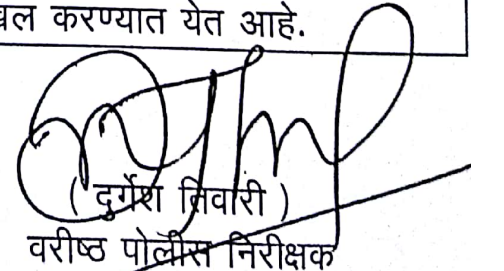 करण्यात येत आहे.
( दुर्गेश तिवारी )
वरीष्ठ पोलीस निरीक्षक